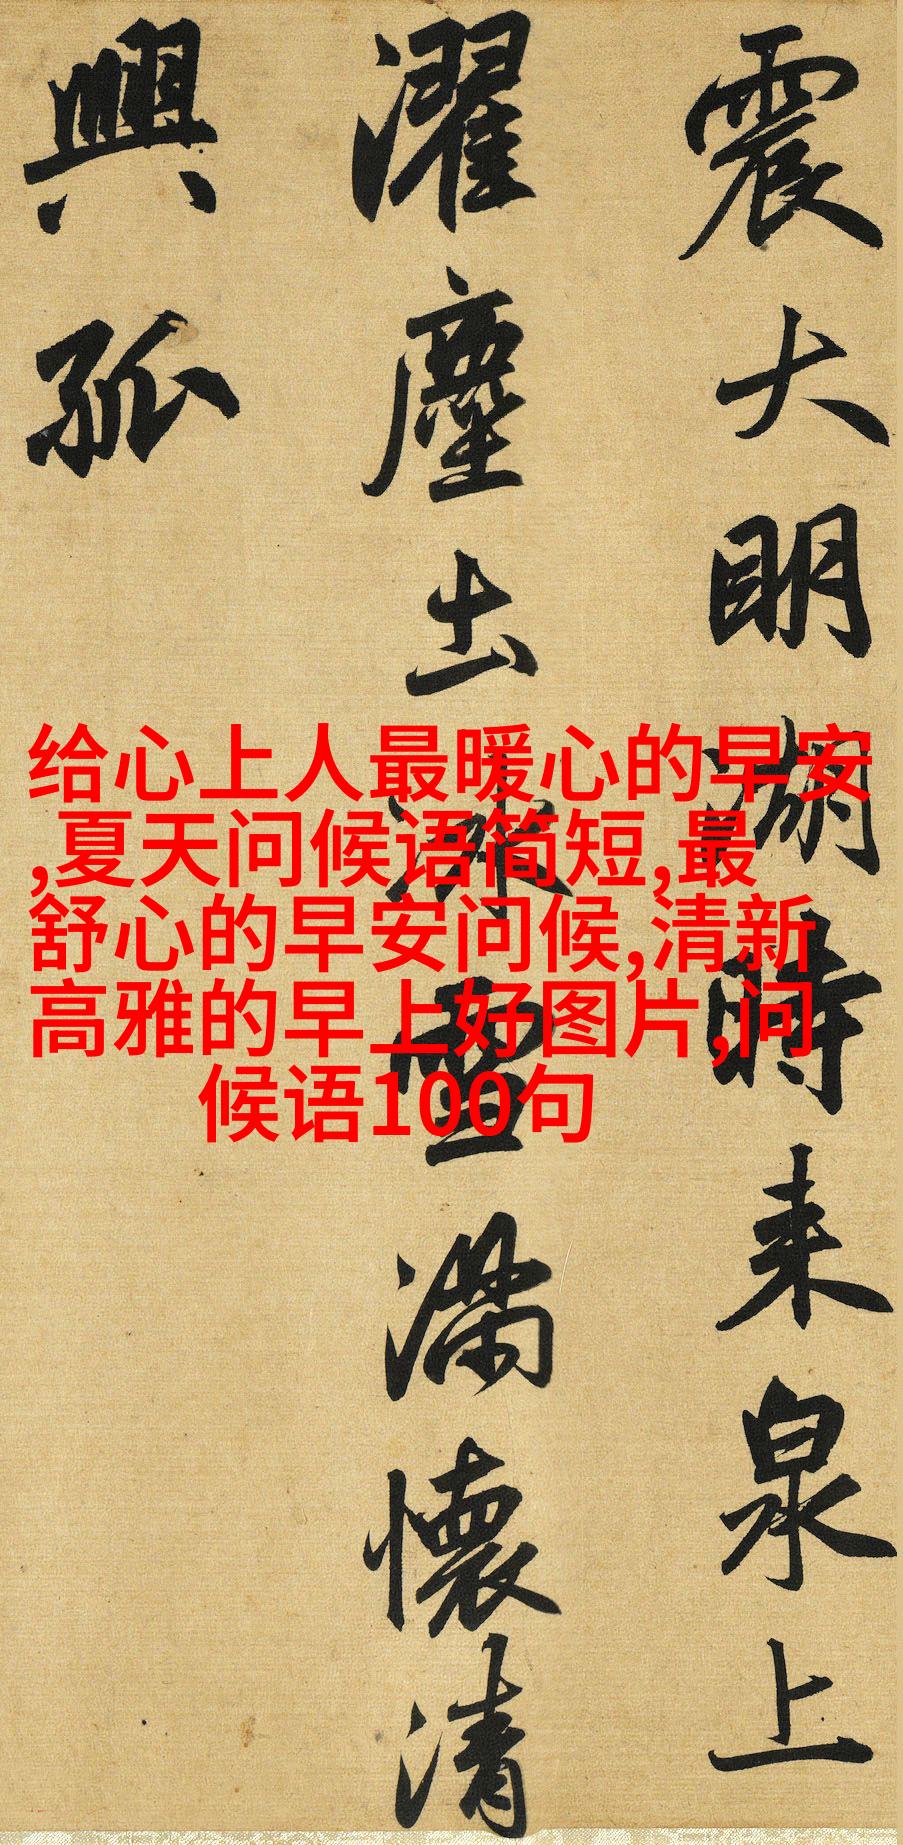 震大明湖時来泉上
濯塵土冰雪满懷清
興孤
给心上人最暖心的早安
,夏天问候语简短,最
舒心的早安问候,清新
高雅的早上好图片,问
候语100句